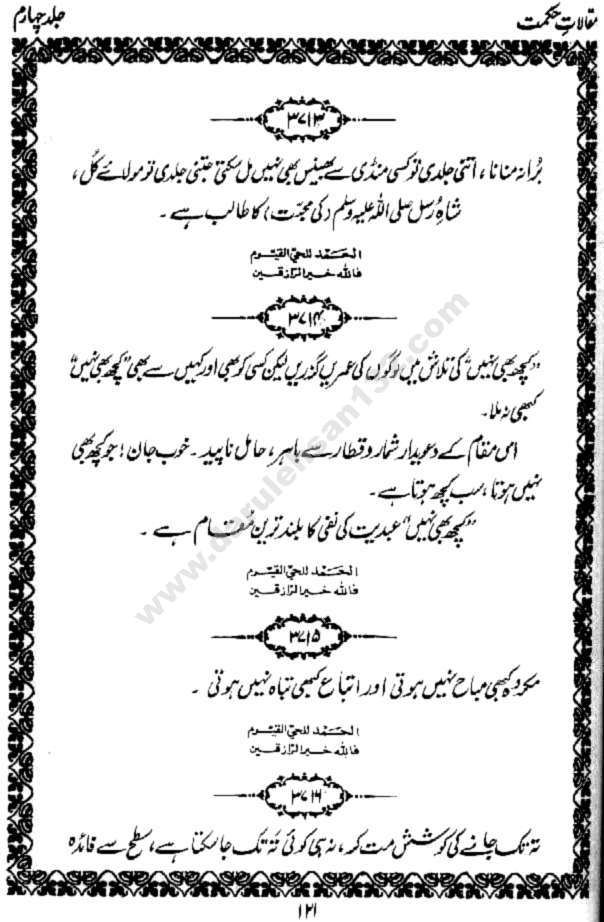 مقالاتِ حکمت
جلد چہارم
۳۷۱۳
بُرا نہ منانا، اتنی جلدی تو کسی منڈی سے بھینس بھی نہیں مل سکتی جتنی جلدی تو مولائے کُل،
شاہِ رُسل صلی اللہ علیہ وسلم (کی محبّت) کا طالب ہے۔
الحَمد للحيّ القيّوم
فالله خير الرازقين
۳۷۱۴
"کچھ بھی نہیں" کی تلاش میں لوگوں کی عمریں گذریں لیکن کسی کو بھی اور کہیں سے بھی "کچھ بھی نہیں"
کبھی نہ ملا۔
اس مقام کے دعویدار شمار و قطار سے باہر، حامل ناپید۔ خوب جان! جو کچھ بھی
نہیں ہوتا، سب کچھ ہوتا ہے۔
"کچھ بھی نہیں" عبدیت کی نفی کا بلند ترین مُقام ہے۔
الحَمد للحيّ القيّوم
فالله خير الرازقين
۳۷۱۵
مکروہ کبھی مباح نہیں ہوتی اور اتباع کبھی تباہ نہیں ہوتی۔
الحَمد للحيّ القيّوم
فالله خير الرازقين
۳۷۱۶
تہ تک جانے کی کوشش مت کر، نہ ہی کوئی تہ تک جا سکتا ہے، سطح سے فائدہ
۱۲۱
www.darulehsan133.com